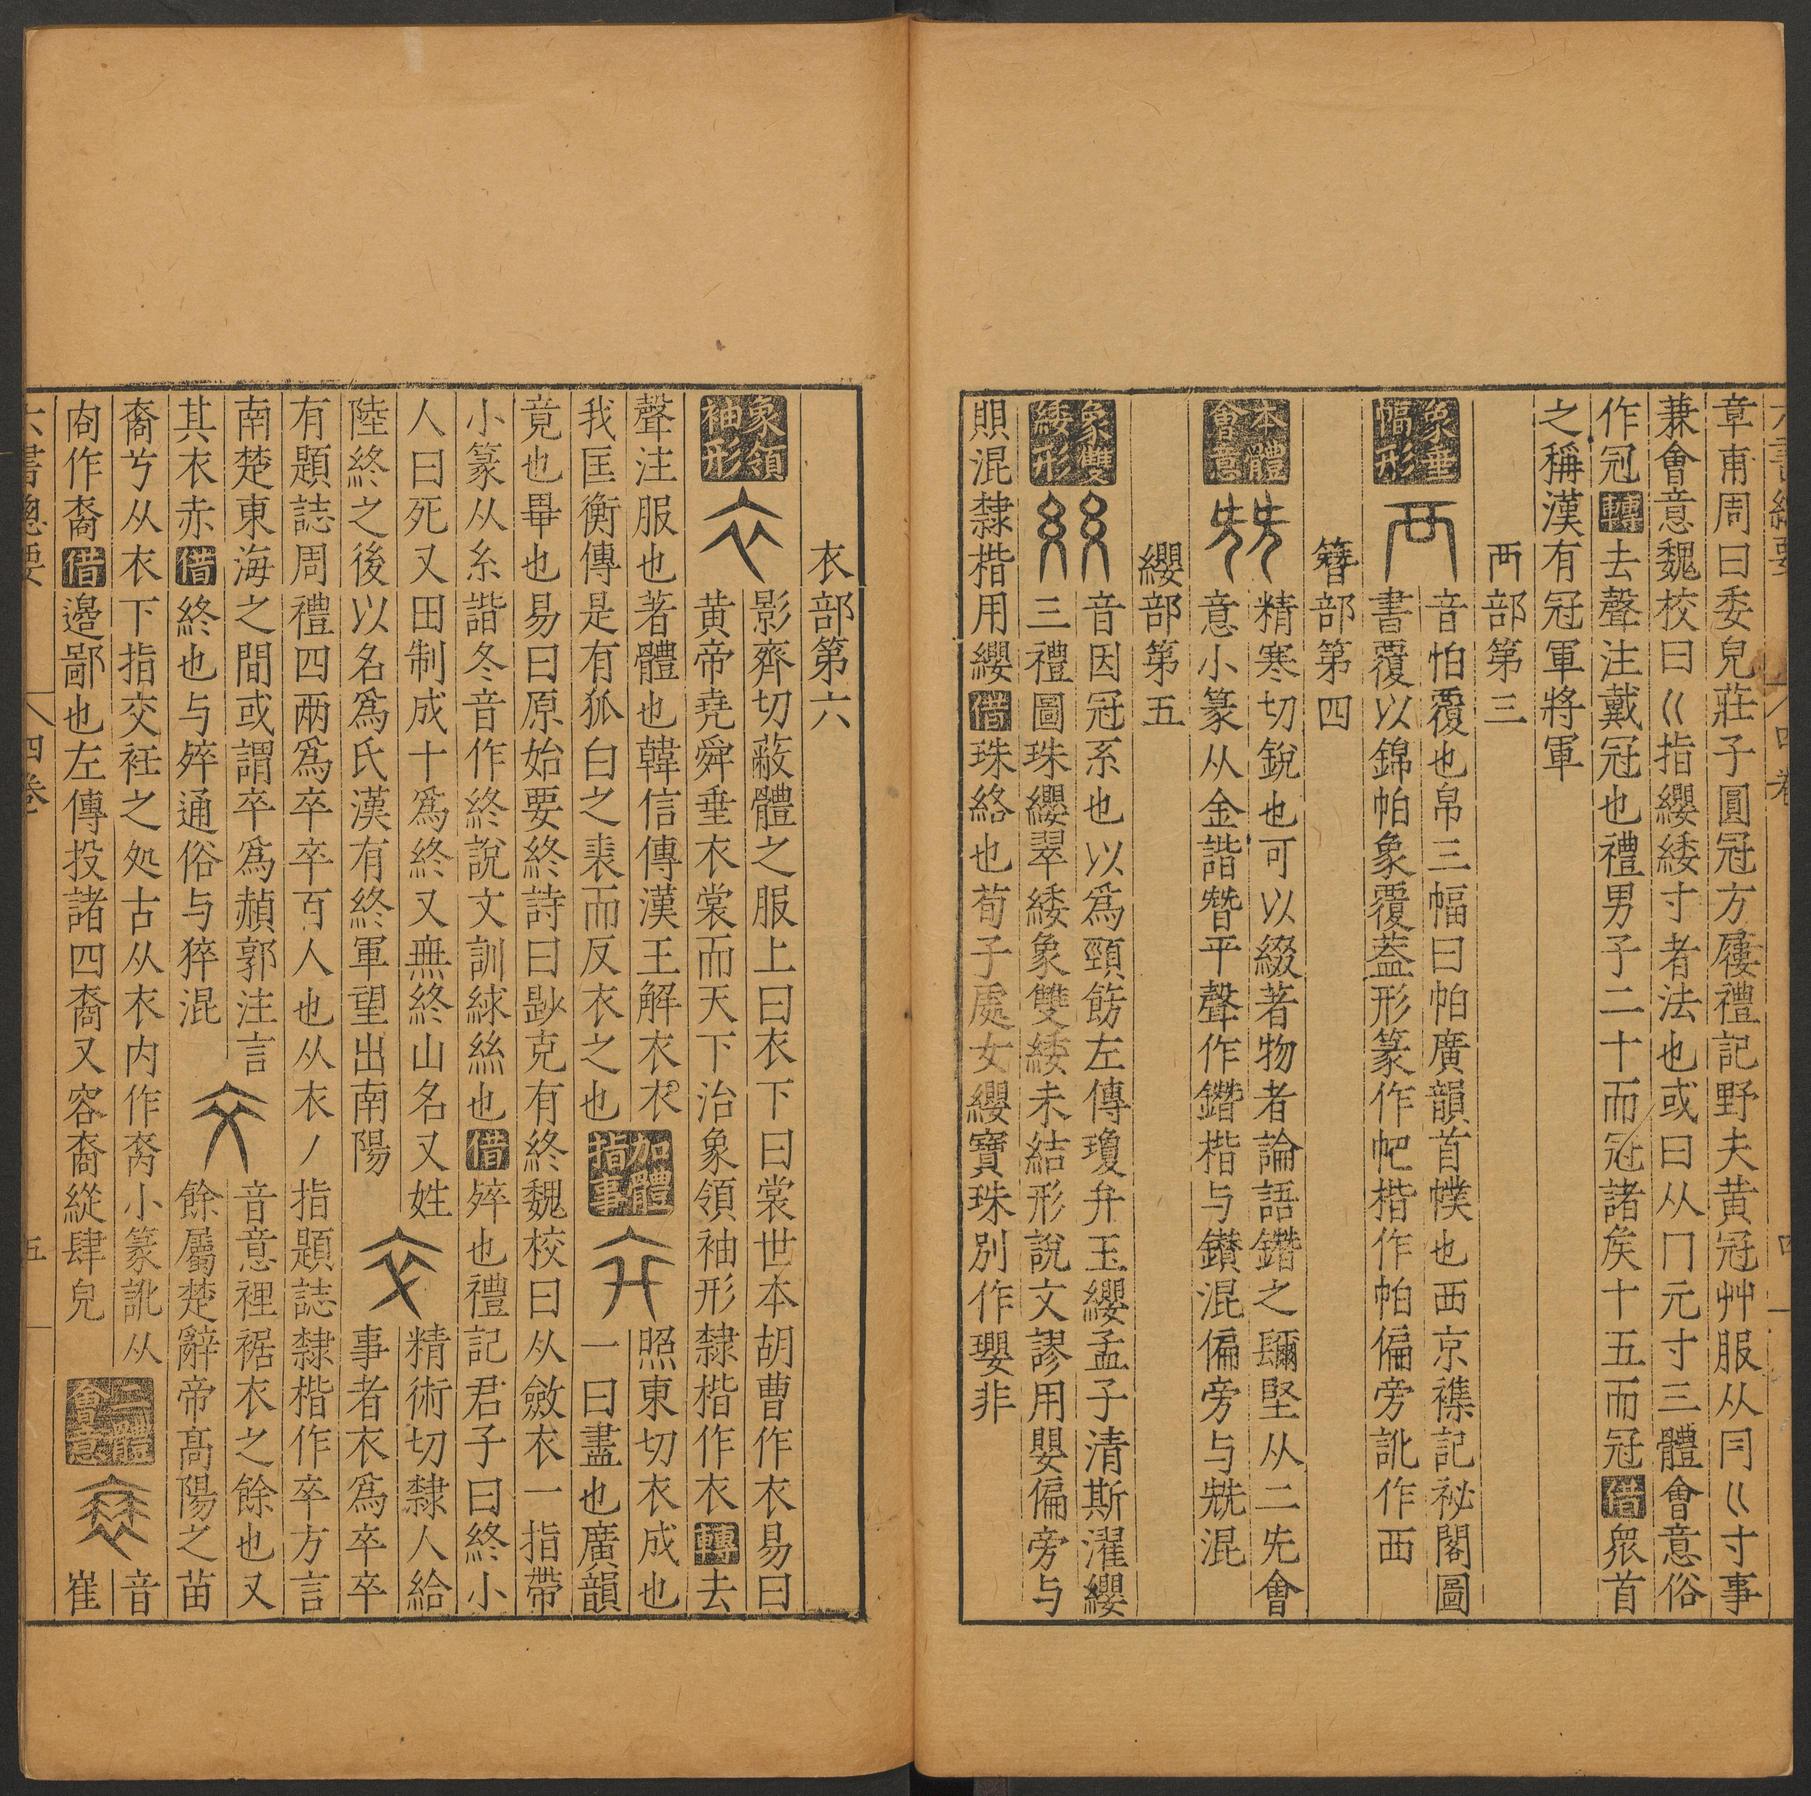 六書總要
四卷
四
章甫周曰委皃莊子圓冠方屨禮記野夫黄冠艸服从冃巜寸事
兼會意魏校曰巜指纓緌寸者法也或曰从冂元寸三體會意俗
作冠轉去聲注戴冠也禮男子二十而冠諸矦十五而冠借眾首
之稱漢有冠軍將軍
襾部第三
象垂幅形
音怕覆也帛三幅曰帕廣韻首幞也西京襍記祕閣圖
書覆以錦帕象覆葢形篆作帊楷作帕偏旁訛作西
簪部第四
本體會意
精寒切銳也可以綴著物者論語鐕之彌堅从二兂會
意小篆从金諧朁平聲作鐕楷与鑚混偏旁与兟混
纓部第五
象雙緌形
音因冠系也以爲頸飾左傳瓊弁玉纓孟子清斯濯纓
三禮圖珠纓翠緌象雙緌未結形說文謬用嬰偏旁与
賏混隸楷用纓借珠絡也荀子處女纓寶珠別作瓔非
衣部第六
象領袖形
影齊切蔽體之服上曰衣下曰裳世本胡曹作衣易曰
黄帝堯舜垂衣裳而天下治象領袖形隸楷作衣轉去
聲注服也著體也韓信傳漢王解衣衣
我匡衡傳是有狐白之裘而反衣之也
加體指事
照東切衣成也
一曰盡也廣韻
竟也畢也易曰原始要終詩曰尟克有終魏校曰从斂衣一指帶
小篆从糸諧冬音作終說文訓絿絲也借殚也禮記君子曰終小
人曰死又田制成十爲終又無終山名又姓
陸終之後以名爲氏漢有終軍望出南陽
精術切隸人給
事者衣爲卒卒
有題誌周禮四兩爲卒卒百人也从衣丿指題誌隸楷作卒方言
南楚東海之間或謂卒爲赬郭注言
其衣赤借終也与殚通俗与猝混
音意裡裾衣之餘也又
餘屬楚辭帝髙陽之苗
裔兮从衣下指交衽之処古从衣内作𠕳小篆訛从
㕯作裔借邉鄙也左傳投諸四裔又容裔縱肆皃
二體會意
音
崔
六書總要
四卷
五